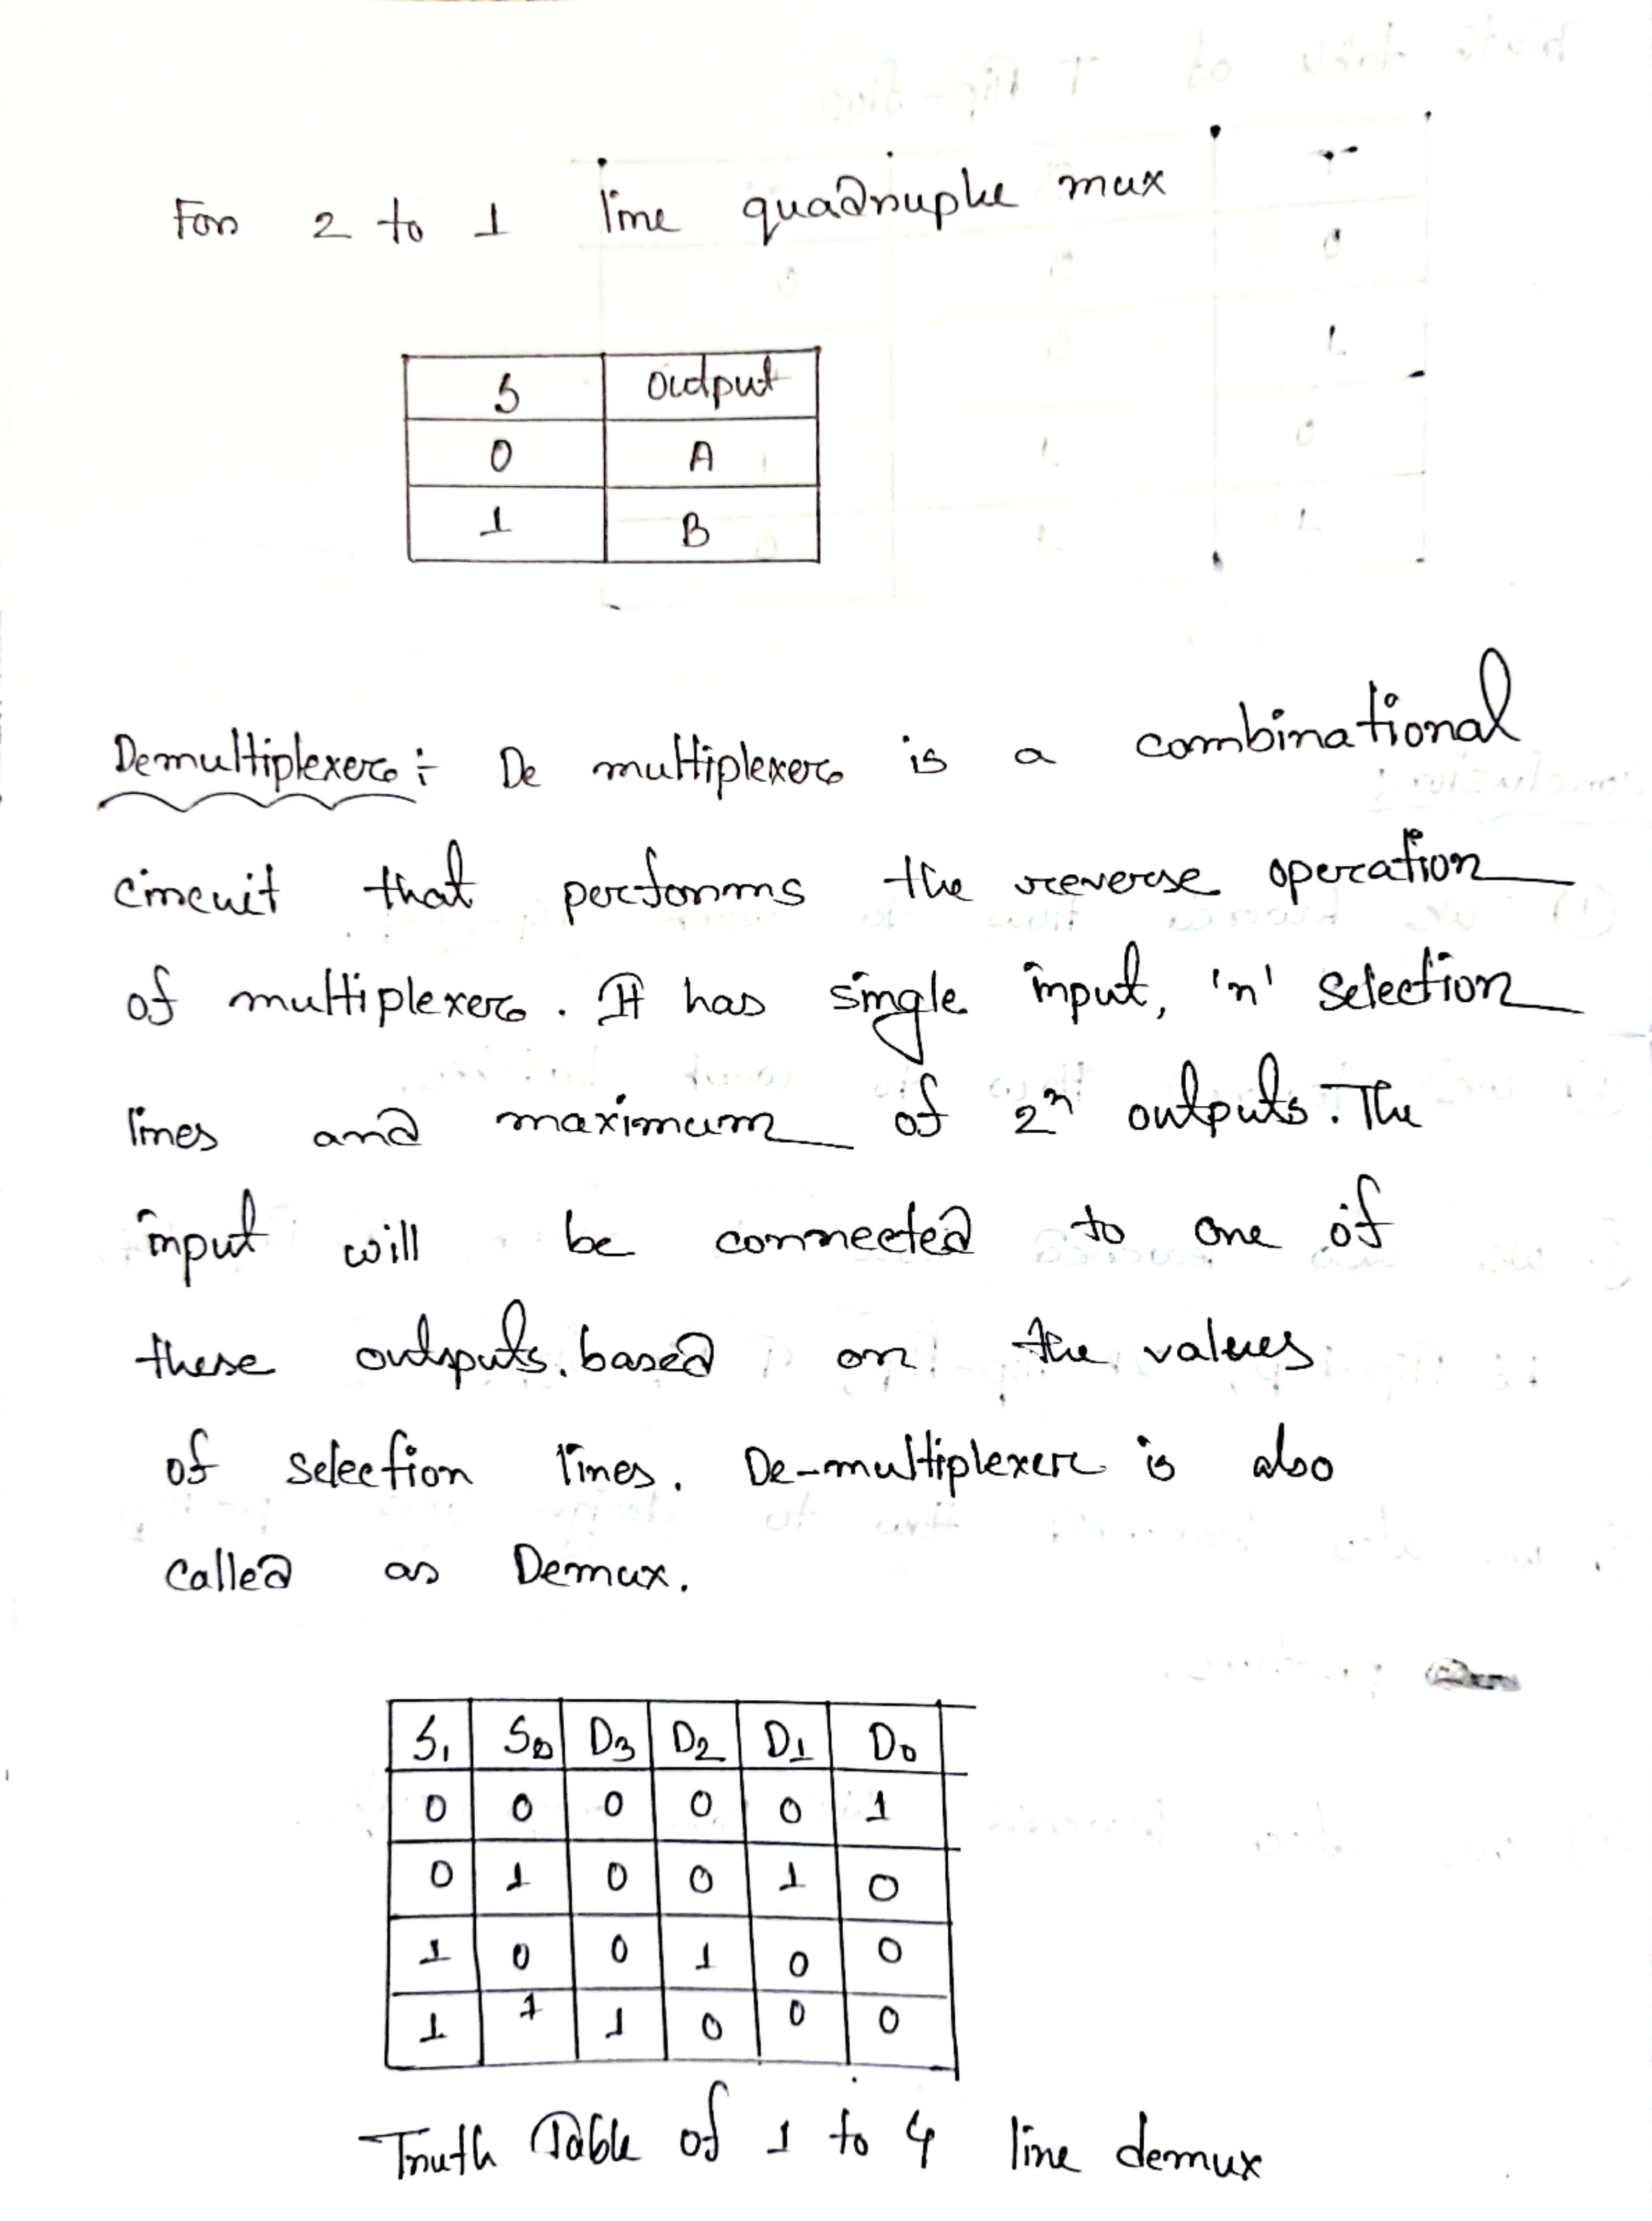 For 2 to 1 line quadruple mux
S output
0 A
1 B
Demultiplexer :- De multiplexer is a combinational
circuit that performs the reverse operation
of multiplexer. It has single input, 'n' selection
lines and maximum of 2ⁿ outputs. The
input will be connected to one of
these outputs. based on the values
of selection lines. De-multiplexer is also
called as Demux.
S₁ S₀ D₃ D₂ D₁ D₀
0 0 0 0 0 1
0 1 0 0 1 0
1 0 0 1 0 0
1 1 1 0 0 0
Truth Table of 1 to 4 line demux